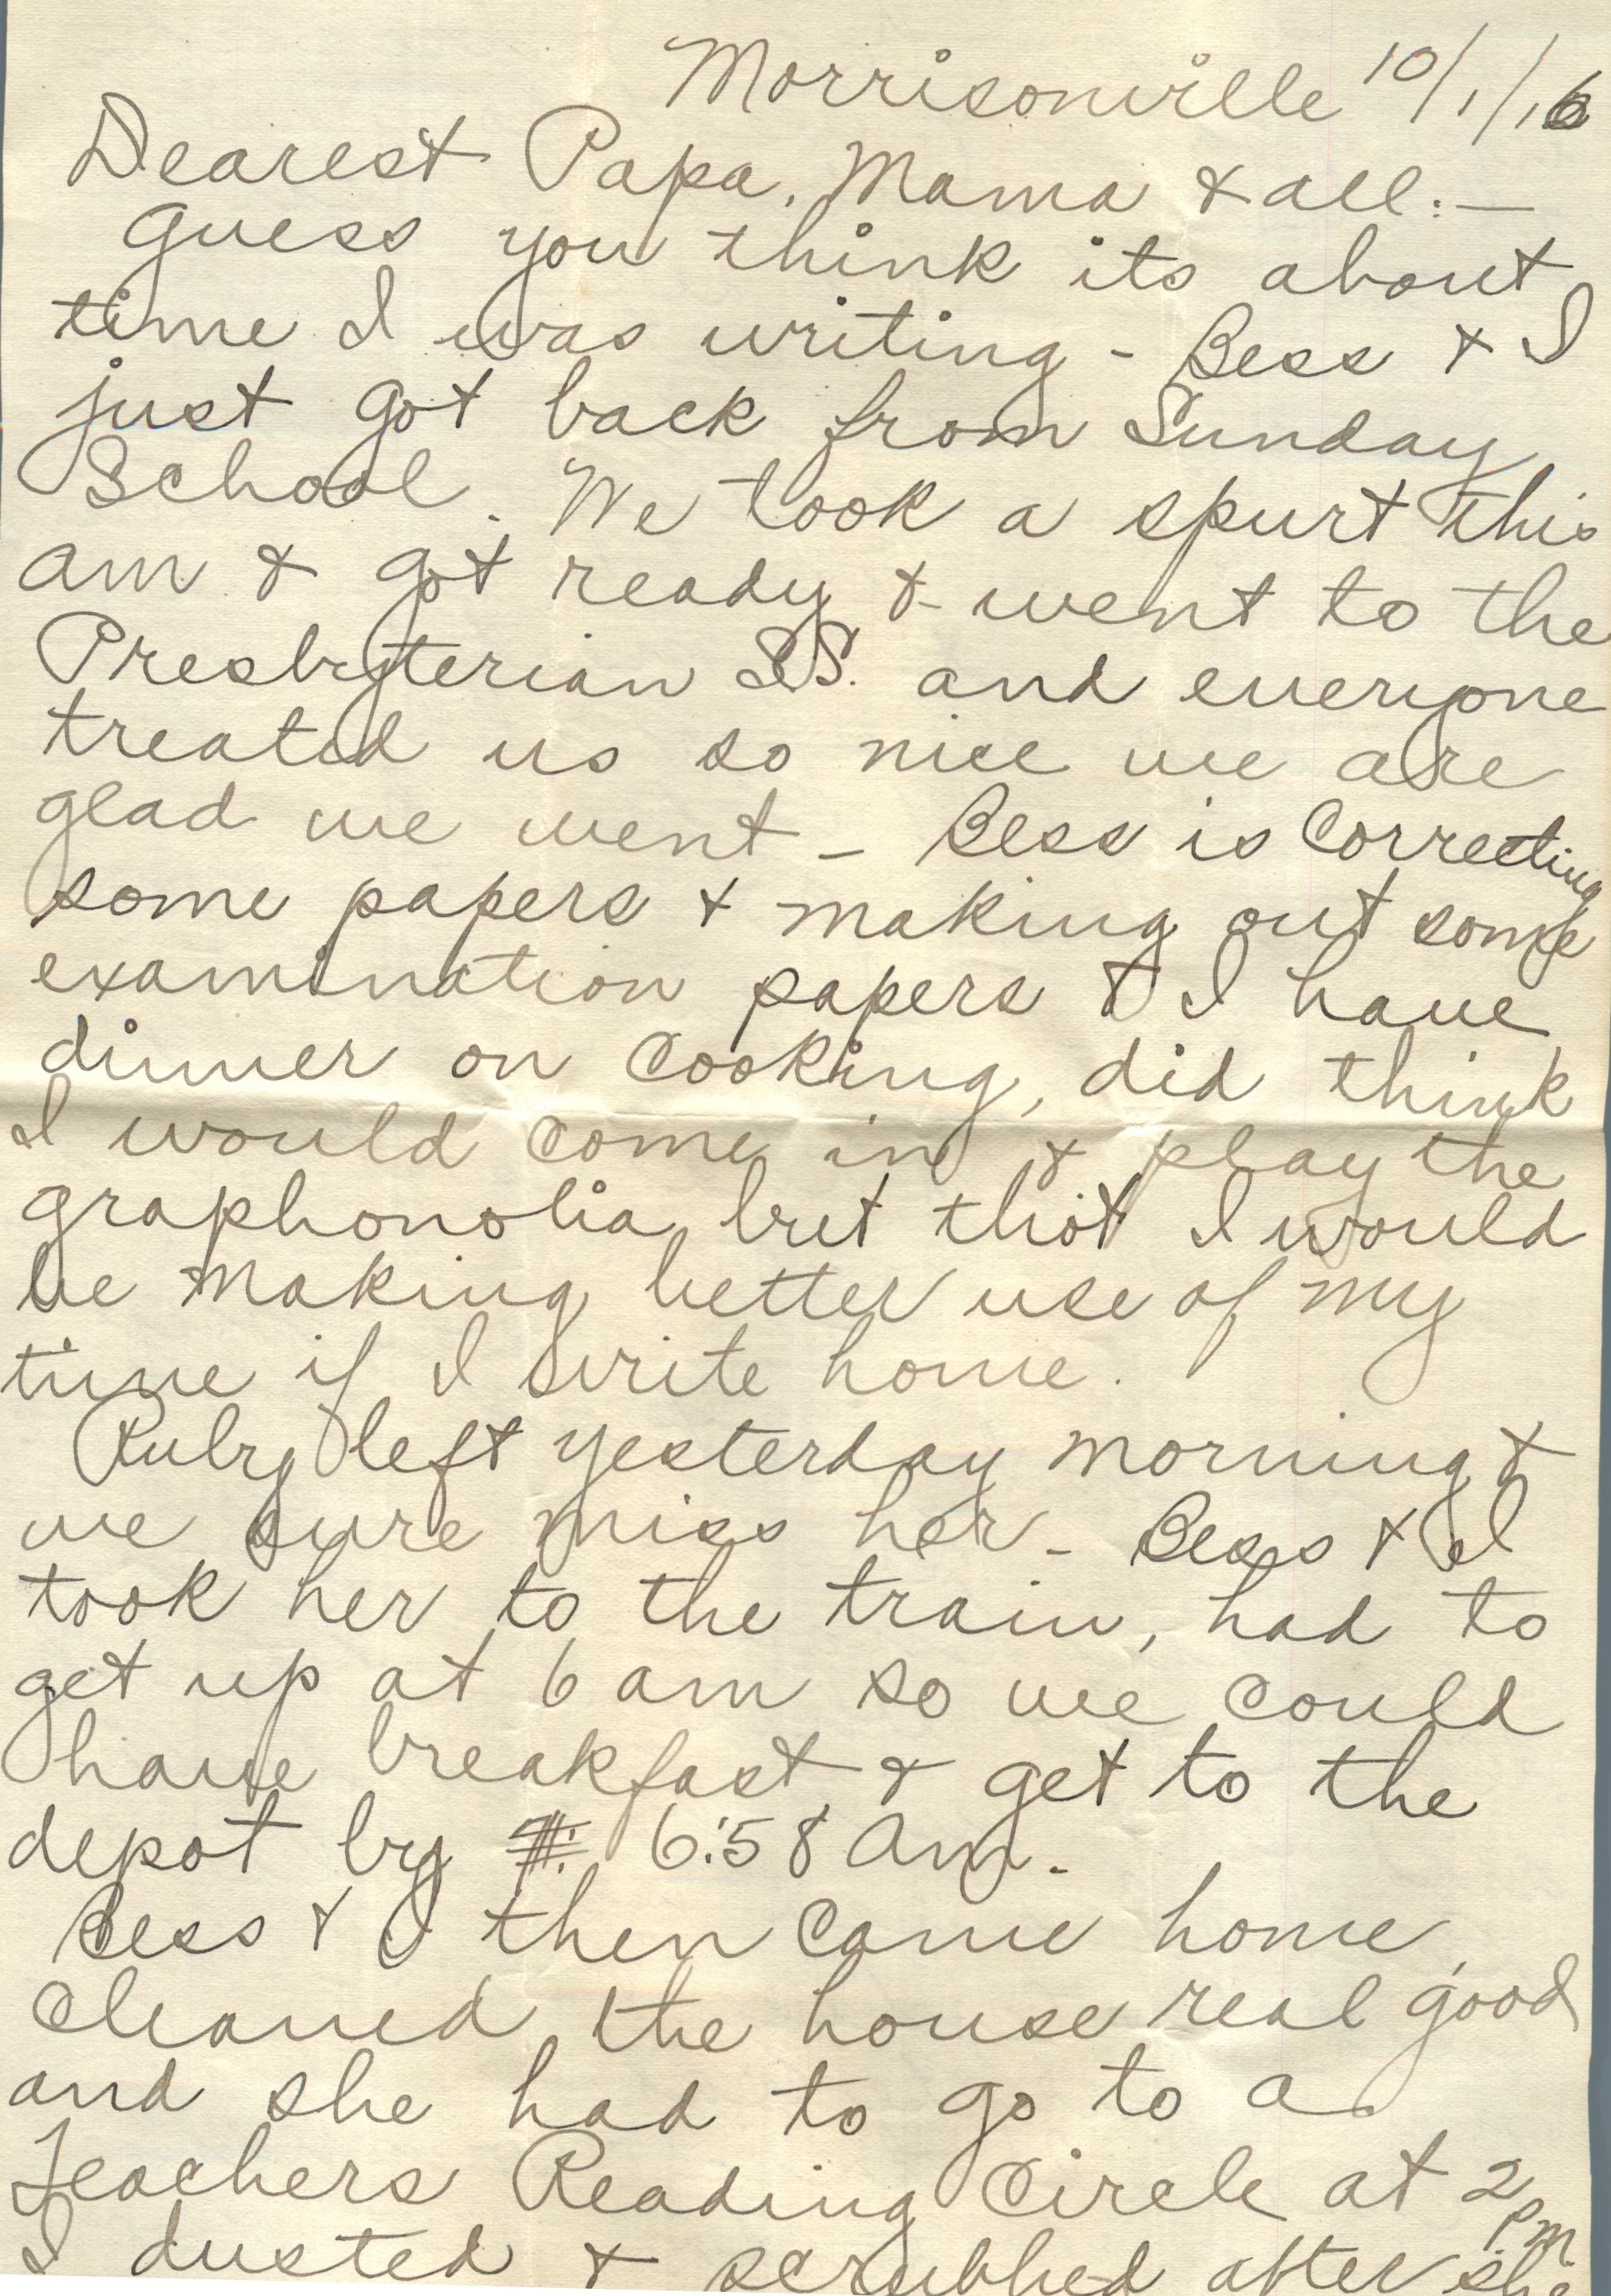 Morrisonville 10/1/16
Dearest Papa, Mama & all:—
Guess you think its about
time I was writing - Bess & I
just got back from Sunday
School. We took a spurt this
am & got ready & went to the
Presbyterian S.S. and everyone
treated us so nice we are
glad we went - Bess is Correcting
some papers & making out some
examination papers & I have
dinner on cooking, did think
I would come in & play the
graphonolia but thot I would
be making better use of my
time if I write home.
Ruby left yesterday morning &
we sure miss her - Bess & I
took her to the train, had to
get up at 6 am so we could
have breakfast & get to the
depot by 6:58 am.
Bess & I then came home,
cleaned the house real good
and she had to go to a
Teachers Reading Circle at 2 pm
I dusted & scrubbed after she